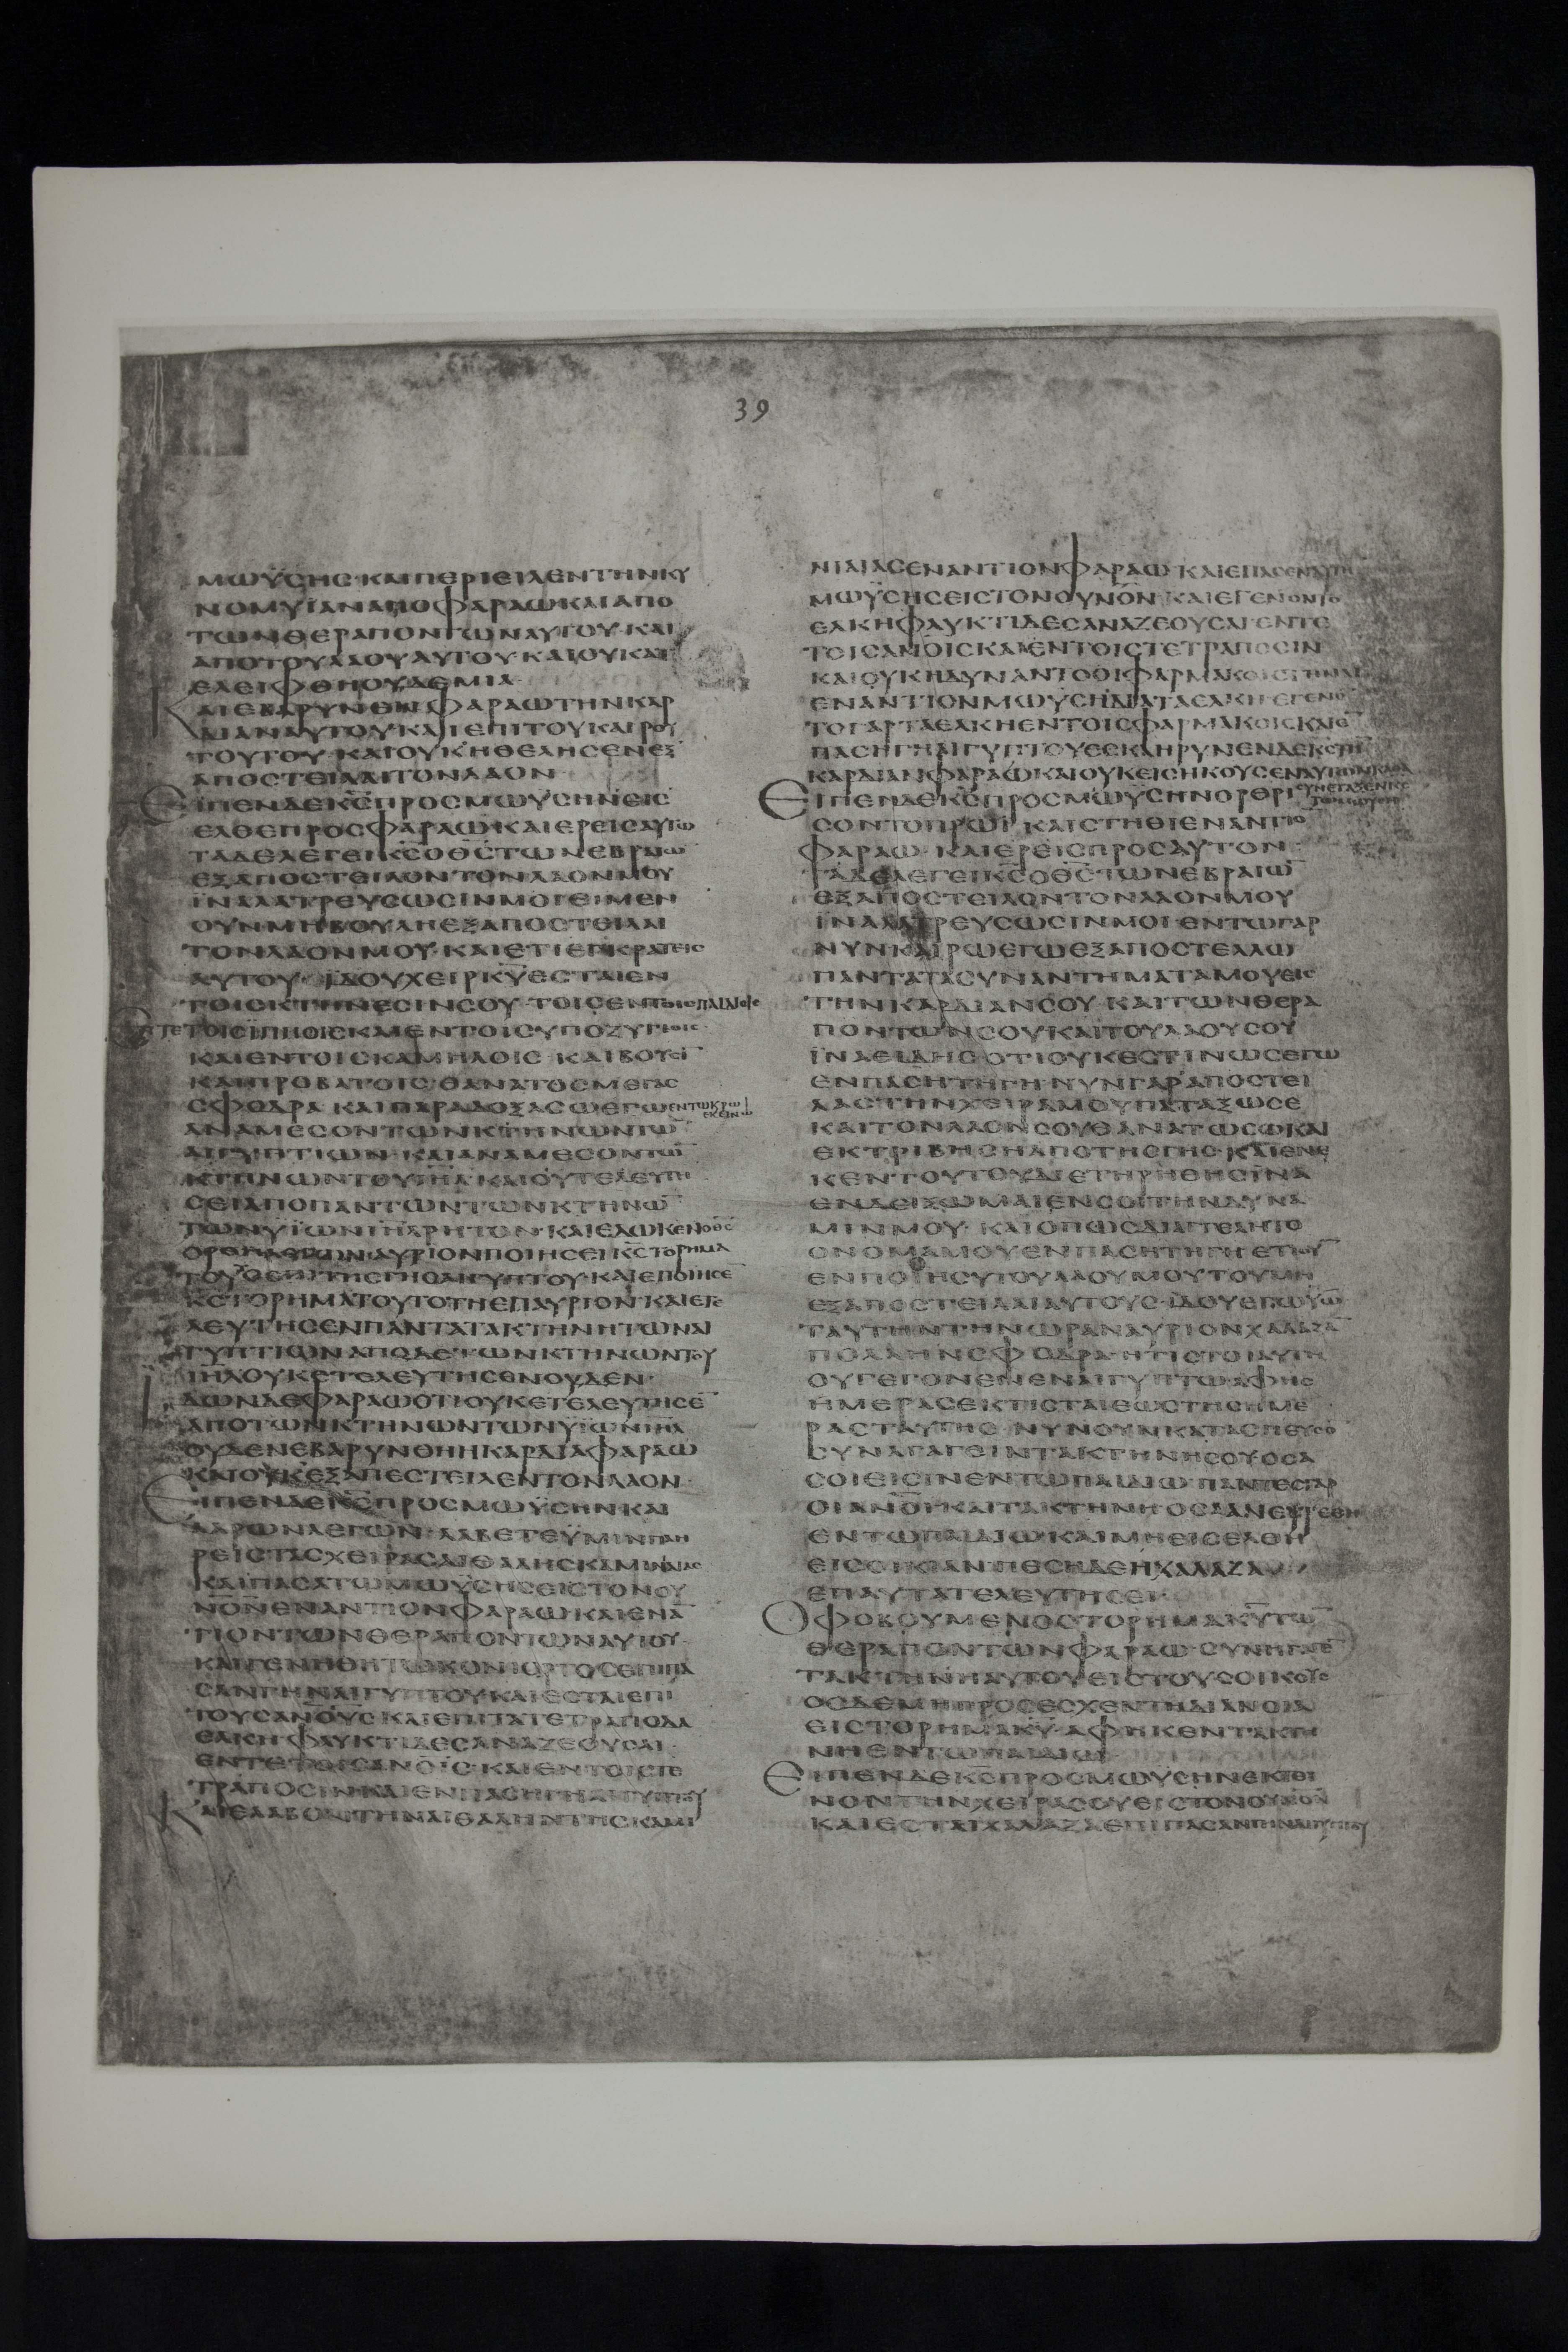 39
ΜΩΫΣΗΣ·ΚΑΙΠΕΡΙΕΙΛΕΝΤΗΝΚΥ
ΝΟΜΥΙΑΝΑΠΟΦΑΡΑΩΚΑΙΑΠΟ
ΤΩΝΘΕΡΑΠΟΝΤΩΝΑΥΤΟΥ·ΚΑΙ
ΑΠΟΤΟΥΛΑΟΥΑΥΤΟΥ·ΚΑΙΟΥΚΑΤ
ΕΛΕΙΦΘΗΟΥΔΕΜΙΑ·
ΚΑΙΕΒΑΡΥΝΘΗΦΑΡΑΩΤΗΝΚΑΡ
ΔΙΑΝΑΥΤΟΥ·ΚΑΙΕΠΙΤΟΥΚΑΙΡΟΥ
ΤΟΥΤΟΥ·ΚΑΙΟΥΚΗΘΕΛΗΣΕΝΕΞ
ΑΠΟΣΤΕΙΛΑΙΤΟΝΛΑΟΝ
ΕΙΠΕΝΔΕΚ̅Σ̅ΠΡΟΣΜΩΫΣΗΝΕΙΣ
ΕΛΘΕΠΡΟΣΦΑΡΑΩ·ΚΑΙΕΡΕΙΣΑΥΤΩ
ΤΑΔΕΛΕΓΕΙΚ̅Σ̅ΟΘ̅Σ̅ΤΩΝΕΒΡΑΙΩ̅
ΕΞΑΠΟΣΤΕΙΛΟΝΤΟΝΛΑΟΝΜΟΥ
ΪΝΑΛΑΤΡΕΥΣΩΣΙΝΜΟΙ·ΕΙΜΕΝ
ΟΥΝΜΗΒΟΥΛΗΕΞΑΠΟΣΤΕΙΛΑΙ
ΤΟΝΛΑΟΝΜΟΥ·ΚΑΙΕΤΙΕΓΚΡΑΤΕΙΣ
ΑΥΤΟΥ·ΪΔΟΥΧΕΙΡΚ̅Υ̅ΕΣΤΑΙΕΝ
ΤΟΙΣΚΤΗΝΕΣΙΝΣΟΥ·ΤΟΙΣΕΝΤΟΙΣΠΑΙΔΙΟΙΣ
ΕΝΤΕΤΟΙΣΙΠΠΟΙΣΚΑΙΕΝΤΟΙΣΥΠΟΖΥΓΙΟΙΣ·
ΚΑΙΕΝΤΟΙΣΚΑΜΗΛΟΙΣ·ΚΑΙΒΟΥΣΙ̅
ΚΑΙΠΡΟΒΑΤΟΙΣ·ΘΑΝΑΤΟΣΜΕΓΑΣ
ΣΦΟΔΡΑ·ΚΑΙΠΑΡΑΔΟΞΑΣΩΕΓΩΕΝΤΩΚΡΩ
ΕΚΕΙΝΩ
ΑΝΑΜΕΣΟΝΤΩΝΚΤΗΝΩΝΤΩ̅
ΑΙΓΥΠΤΙΩΝ·ΚΑΙΑΝΑΜΕΣΟΝΤΩ̅
ΚΤΗΝΩΝΤΟΥΙ̅Η̅Λ̅·ΚΑΙΟΥΤΕΛΕΥΤΗ
ΣΕΙΑΠΟΠΑΝΤΩΝΤΩΝΚΤΗΝΩ̅
ΤΩΝΥΙΩΝΙ̅Η̅Λ̅ΡΗΤΟΝ·ΚΑΙΕΔΩΚΕΝΟΘ̅Σ̅
ΟΡΟΝΛΕΓΩΝΑΥΡΙΟΝΠΟΙΗΣΕΙΚ̅Σ̅ΤΟΡΗΜΑ
ΤΟΥΤΟΕΠΙΤΗΣΓΗΣΑΙΓΥΠΤΟΥ·ΚΑΙΕΠΟΙΗΣΕ̅
Κ̅Σ̅ΤΟΡΗΜΑΤΟΥΤΟΤΗΕΠΑΥΡΙΟΝ·ΚΑΙΕΤΕ
ΛΕΥΤΗΣΕΝΠΑΝΤΑΤΑΚΤΗΝΗΤΩΝΑΙ
ΓΥΠΤΙΩΝΑΠΟΔΕΤΩΝΚΤΗΝΩΝΤΟΥ
Ι̅Η̅Λ̅ΟΥΚΕΤΕΛΕΥΤΗΣΕΝΟΥΔΕΝ·
ΙΔΩΝΔΕΦΑΡΑΩΟΤΙΟΥΚΕΤΕΛΕΥΤΗΣΕ̅
ΑΠΟΤΩΝΚΤΗΝΩΝΤΩΝΥΪΩΝΙ̅Η̅Λ̅
ΟΥΔΕΝΕΒΑΡΥΝΘΗΗΚΑΡΔΙΑΦΑΡΑΩ
ΚΑΙΟΥΚΕΞΑΠΕΣΤΕΙΛΕΝΤΟΝΛΑΟΝ·
ΕΙΠΕΝΔΕΚ̅Σ̅ΠΡΟΣΜΩΫΣΗΝΚΑΙ
ΑΑΡΩΝΛΕΓΩΝ·ΛΑΒΕΤΕΫΜΙΝΠΛΗ
ΡΕΙΣΤΑΣΧΕΙΡΑΣΑΙΘΑΛΗΣΚΑΜΙΝΙΑΙΑΣ
ΚΑΙΠΑΣΑΤΩΜΩΫΣΗΣΕΙΣΤΟΝΟΥ
ΝΟ̅Ν̅ΕΝΑΝΤΙΟΝΦΑΡΑΩ·ΚΑΙΕΝΑ̅
ΤΙΟΝΤΩΝΘΕΡΑΠΟΝΤΩΝΑΥΤΟΥ·
ΚΑΙΓΕΝΗΘΗΤΩΚΟΝΙΟΡΤΟΣΕΠΙΠΑ
ΣΑΝΓΗΝΑΙΓΥΠΤΟΥ·ΚΑΙΕΣΤΑΙΕΠΙ
ΤΟΥΣΑΝ̅Ο̅ΥΣΚΑΙΕΠΙΤΑΤΕΤΡΑΠΟΔΑ
ΕΛΚΗΦΛΥΚΤΙΔΕΣΑΝΑΖΕΟΥΣΑΙ·
ΕΝΤΕΤΟΙΣΑΝ̅Ο̅ΙΣ·ΚΑΙΕΝΤΟΙΣΤΕ
ΤΡΑΠΟΣΙΝΚΑΙΕΝΠΑΣΗΓΗΑΙΓΥΠΤΟΥ
ΚΑΙΕΛΑΒΟΝΤΗΝΑΙΘΑΛΗΝΤΗΣΚΑΜΙ
ΝΙΑΙΑΣΕΝΑΝΤΙΟΝΦΑΡΑΩ·ΚΑΙΕΠΑΣΕΝΑΥΤΗ
ΜΩΫΣΗΣΕΙΣΤΟΝΟΥΝΟ̅Ν̅·ΚΑΙΕΓΕΝΟΝΤΟ
ΕΛΚΗΦΛΥΚΤΙΔΕΣΑΝΑΖΕΟΥΣΑΙ·ΕΝΤΕ
ΤΟΙΣΑΝ̅Ο̅ΙΣΚΑΙΕΝΤΟΙΣΤΕΤΡΑΠΟΣΙΝ
ΚΑΙΟΥΚΗΔΥΝΑΝΤΟΟΙΦΑΡΜΑΚΟΙΣΤΗΝΑΙ
ΕΝΑΝΤΙΟΝΜΩΫΣΗΔΙΑΤΑΕΛΚΗ·ΕΓΕΝΕ
ΤΟΓΑΡΤΑΕΛΚΗΕΝΤΟΙΣΦΑΡΜΑΚΟΙΣΚΑΙΕ̅
ΠΑΣΗΓΗΑΙΓΥΠΤΟΥΕΣΚΛΗΡΥΝΕΝΔΕΚ̅Σ̅ΤΗ̅
ΚΑΡΔΙΑΝΦΑΡΑΩΚΑΙΟΥΚΕΙΣΗΚΟΥΣΕΝΑΥΤΩΝΚΑΘΑ
ΣΥΝΕΤΑΞΕΝΚ̅Σ̅
ΤΩΜΩΥΣΗ
ΕΙΠΕΝΔΕΚ̅Σ̅ΠΡΟΣΜΩΫΣΗΝΟΡΘΡΙ
ΣΟΝΤΟΠΡΩΪ·ΚΑΙΣΤΗΘΙΕΝΑΝΤΙΟ̅
ΦΑΡΑΩ·ΚΑΙΕΡΕΙΣΠΡΟΣΑΥΤΟΝ
ΤΑΔΕΛΕΓΕΙΚ̅Σ̅ΟΘ̅Σ̅ΤΩΝΕΒΡΑΙΩ̅
ΕΞΑΠΟΣΤΕΙΛΟΝΤΟΝΛΑΟΝΜΟΥ
ΪΝΑΛΑΤΡΕΥΣΩΣΙΝΜΟΙ·ΕΝΤΩΓΑΡ
ΝΥΝΚΑΙΡΩΕΓΩΕΞΑΠΟΣΤΕΛΛΩ
ΠΑΝΤΑΤΑΣΥΝΑΝΤΗΜΑΤΑΜΟΥΕΙΣ
ΤΗΝΚΑΡΔΙΑΝΣΟΥ·ΚΑΙΤΩΝΘΕΡΑ
ΠΟΝΤΩΝΣΟΥΚΑΙΤΟΥΛΑΟΥΣΟΥ
ΪΝΑΕΙΔΗΣΟΤΙΟΥΚΕΣΤΙΝΩΣΕΓΩ
ΕΝΠΑΣΗΤΗΓΗ·ΝΥΝΓΑΡΑΠΟΣΤΕΙ
ΛΑΣΤΗΝΧΕΙΡΑΜΟΥΠΑΤΑΞΩΣΕ
ΚΑΙΤΟΝΛΑΟΝΣΟΥΘΑΝΑΤΩΣΩΚΑΙ
ΕΚΤΡΙΒΗΣΗΑΠΟΤΗΣΓΗΣ·ΚΑΙΕΝΕ
ΚΕΝΤΟΥΤΟΥΔΙΕΤΗΡΗΘΗΣΪΝΑ
ΕΝΔΕΙΞΩΜΑΙΕΝΣΟΙΤΗΝΔΥΝΑ
ΜΙΝΜΟΥ·ΚΑΙΟΠΩΣΔΙΑΓΓΕΛΗΤΟ
ΟΝΟΜΑΜΟΥΕΝΠΑΣΗΤΗΓΗ·ΕΤΙΟΥ̅
ΕΝΠΟΙΗΣΥΤΟΥΛΑΟΥΜΟΥΤΟΥΜΗ
ΕΞΑΠΟΣΤΕΙΛΑΙΑΥΤΟΥΣ·ΪΔΟΥΕΓΩΫΩ
ΤΑΥΤΗΝΤΗΝΩΡΑΝΑΥΡΙΟΝΧΑΛΑΖΑ̅
ΠΟΛΛΗΝΣΦΟΔΡΑ·ΗΤΙΣΤΟΙΑΥΤΗ
ΟΥΓΕΓΟΝΕΝΕΝΑΙΓΥΠΤΩ·ΑΦΗΣ
ΗΜΕΡΑΣΕΚΤΙΣΤΑΙΕΩΣΤΗΣΗΜΕ
ΡΑΣΤΑΥΤΗΣ·ΝΥΝΟΥΝΚΑΤΑΣΠΕΥΣΟ̅
ΣΥΝΑΓΑΓΕΙΝΤΑΚΤΗΝΗΣΟΥΟΣΑ
ΣΟΙΕΙΣΙΝΕΝΤΩΠΑΙΔΙΩ·ΠΑΝΤΕΣΓΑΡ
ΟΙΑΝ̅Ο̅Ι·ΚΑΙΤΑΚΤΗΝΗ·ΟΣΑΑΝΕΥΡΕΘΗ
ΕΝΤΩΠΑΙΔΙΩ·ΚΑΙΜΗΕΙΣΕΛΘΗ
ΕΙΣΟΙΚΙΑΝΠΕΣΗΔΕΗΧΑΛΑΖΑ
ΕΠΑΥΤΑΤΕΛΕΥΤΗΣΕΙ·
ΟΦΟΒΟΥΜΕΝΟΣΤΟΡΗΜΑΚ̅Υ̅ΤΩ̅
ΘΕΡΑΠΟΝΤΩΝΦΑΡΑΩ·ΣΥΝΗΓΑΓΕ̅
ΤΑΚΤΗΝΗΑΥΤΟΥΕΙΣΤΟΥΣΟΙΚΟΥΣ
ΟΣΔΕΜΗΠΡΟΣΕΣΧΕΝΤΗΔΙΑΝΟΙΑ
ΕΙΣΤΟΡΗΜΑΚ̅Υ̅·ΑΦΗΚΕΝΤΑΚΤΗ
ΝΗΕΝΤΩΠΑΙΔΙΩ
ΕΙΠΕΝΔΕΚ̅Σ̅ΠΡΟΣΜΩΫΣΗΝΕΚΤΕΙ
ΝΟΝΤΗΝΧΕΙΡΑΣΟΥΕΙΣΤΟΝΟΥΝΟ̅Ν̅
ΚΑΙΕΣΤΑΙΧΑΛΑΖΑΕΠΙΠΑΣΑΝΓΗΝΑΙΓΥΠΤΟΥ